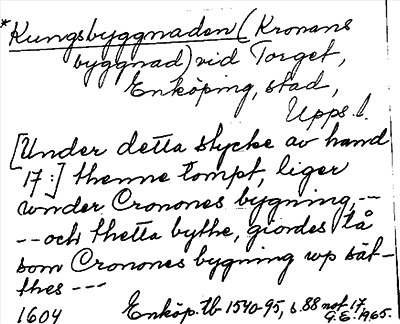 *Kungsbyggnaden (Kronans
byggnad) vid Torget,
Enköping, stad,
Upps. l.
[Under detta stycke av hand
17:] thenne tompt, liger
wnder Cronones bygning, --
--och thetta bythe, giordes tå
som Cronones bygning wp sät-
thes ---
1604 Enköp. tb 1540-95, s. 88 not 17
G.E. 1965.